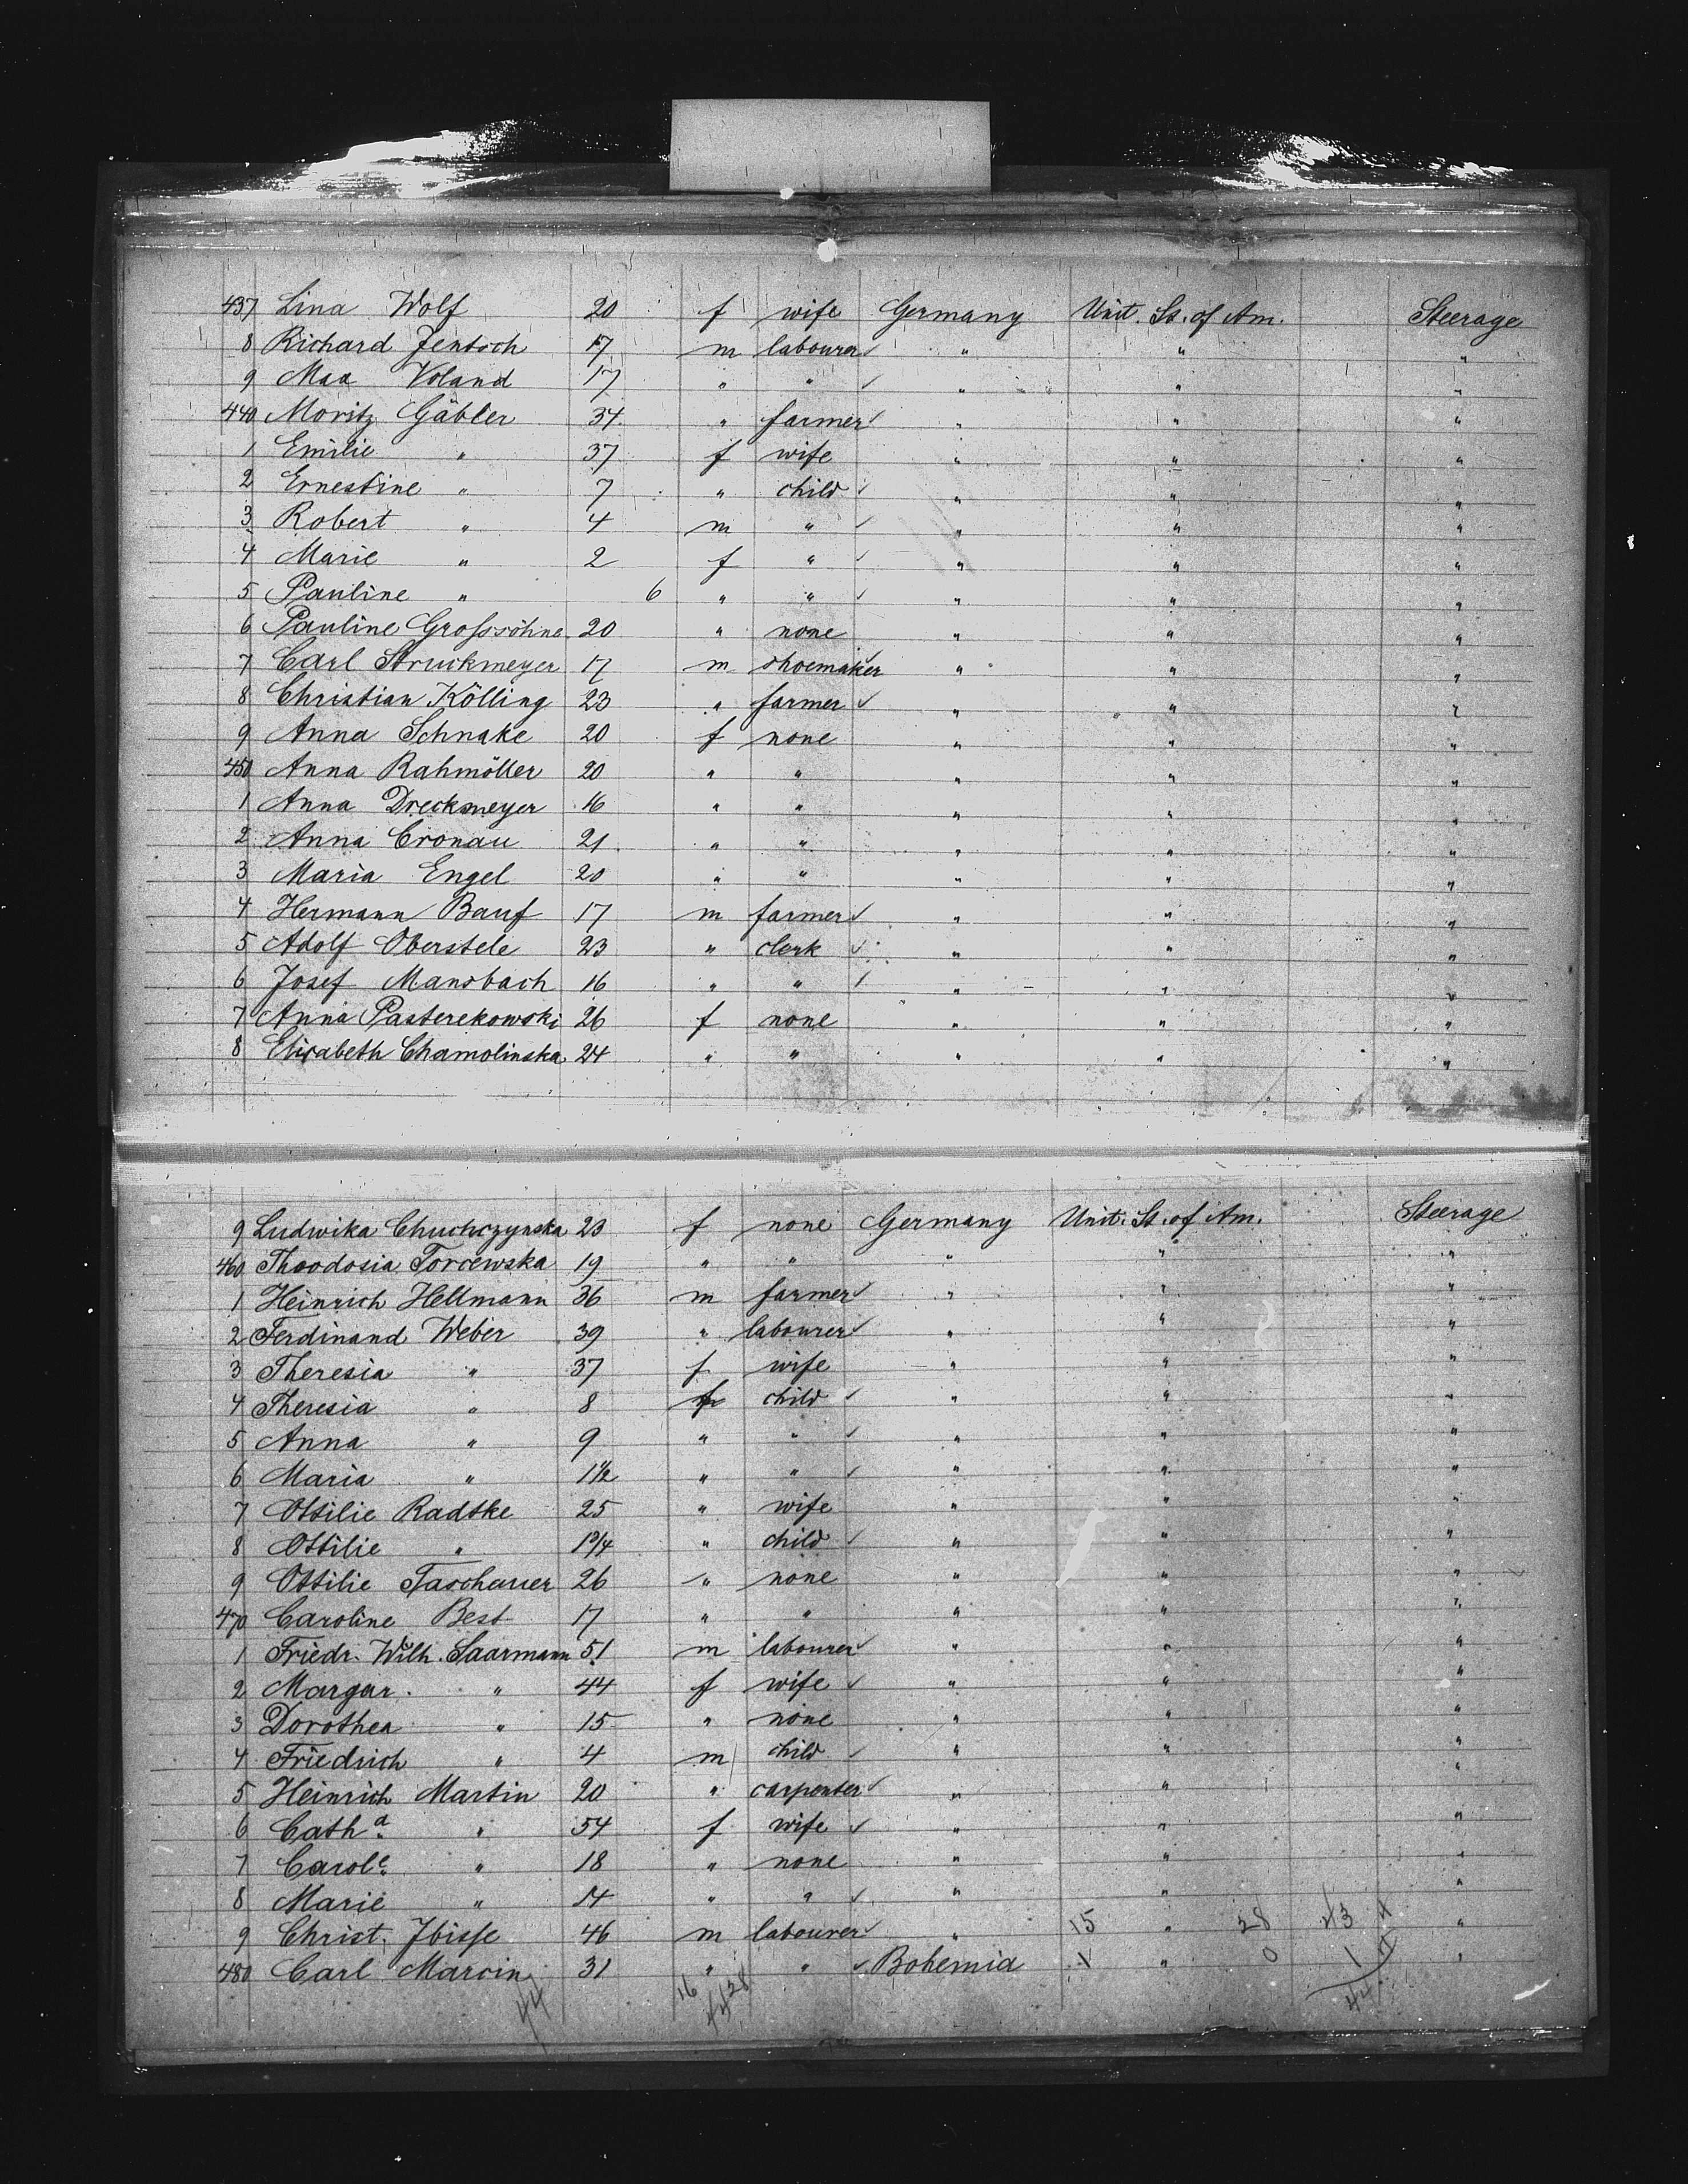 437 Lina Wolf 20 f wife Germany Unit. St. of Am. Steerage
8 Richard Jentsch 17 m labourer " " "
9 Max Voland 17 " " " " "
440 Moritz Gäbler 34 " farmer " " "
1 Emilie " 37 f wife " " "
2 Ernestine " 7 " child " " "
3 Robert " 4 m " " " "
4 Marie " 2 f " " " "
5 Pauline " 6 " " " " "
6 Pauline Grossöhne 20 " none " " "
7 Carl Struckmeyer 17 m shoemaker " " "
8 Christian Kölling 23 " farmer " " "
9 Anna Schnake 20 f none " " "
450 Anna Rahmöller 20 " " " " "
1 Anna Dreckmeyer 16 " " " " "
2 Anna Cronau 21 " " " " "
3 Maria Engel 20 " " " " "
4 Hermann Bauf 17 m farmer " " "
5 Adolf Oberstele 23 " clerk " " "
6 Josef Mansbach 16 " " " " "
7 Anna Pasterekowski 26 f none " " "
8 Elisabeth Chamolinska 24 " " " " "
9 Ludwika Chuchczynska 23 f none Germany Unit. St. of Am. Steerage
460 Thoodosia Torcewska 19 " " " " "
1 Heinrich Hellmann 36 m farmer " " "
2 Ferdinand Weber 39 " labourer " " "
3 Theresia " 37 f wife " " "
4 Theresia " 8 f child " " "
5 Anna " 9 " " " " "
6 Maria " 1 1/2 " " " " "
7 Ottilie Radtke 25 " wife " " "
8 Ottilie " 1 3/4 " child " " "
9 Ottilie Taschauer 26 " none " " "
470 Caroline Best 17 " " " " "
1 Friedr. Wilh. Saarmann 51 m labourer " " "
2 Margar. " 44 f wife " " "
3 Dorothea " 15 " none " " "
4 Friedrich " 4 m child " " "
5 Heinrich Martin 20 " carpenter " " "
6 Cath.a " 54 f wife " " "
7 Carol.e " 18 " none " " "
8 Marie " 14 " " " " "
9 Christ. Ibisse 46 m labourer " 15 " 28 43 4 "
480 Carl Marcin 31 " " Bohemia 1 " 0 1 "
44 16 28 44 44